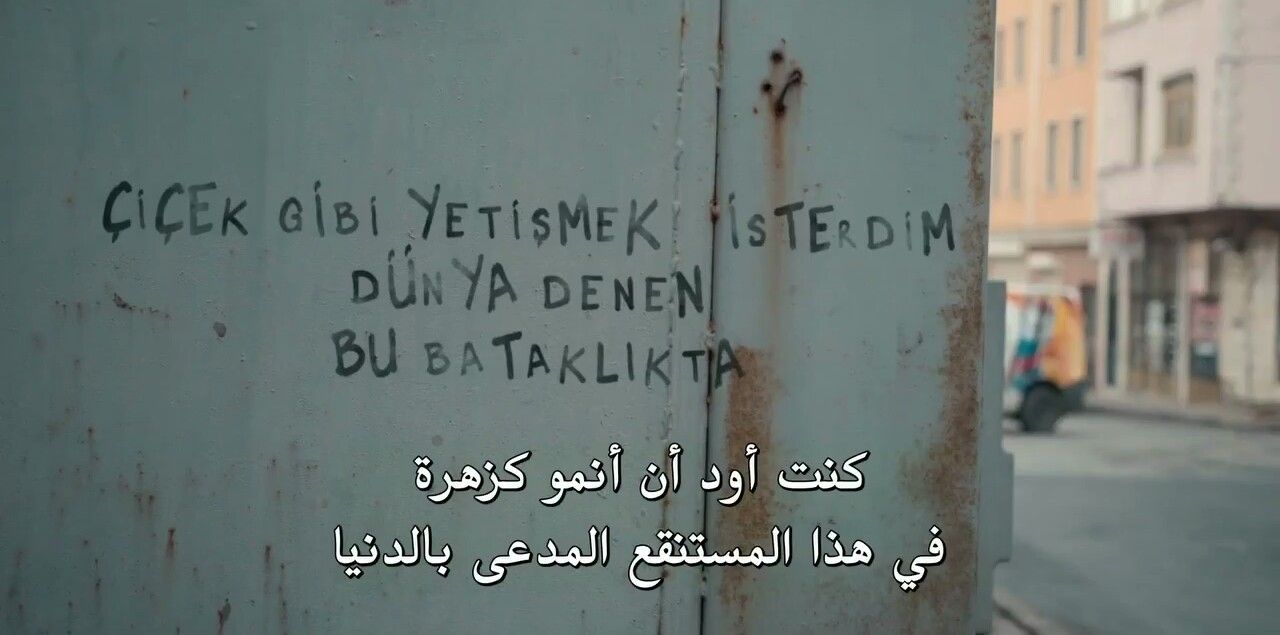 ÇİÇEK GİBİ YETİŞMEK İSTERDİM
DÜNYA DENEN
BU BATAKLIKTA
كنت أود أن أنمو كزهرة
في هذا المستنقع المدعى بالدنيا